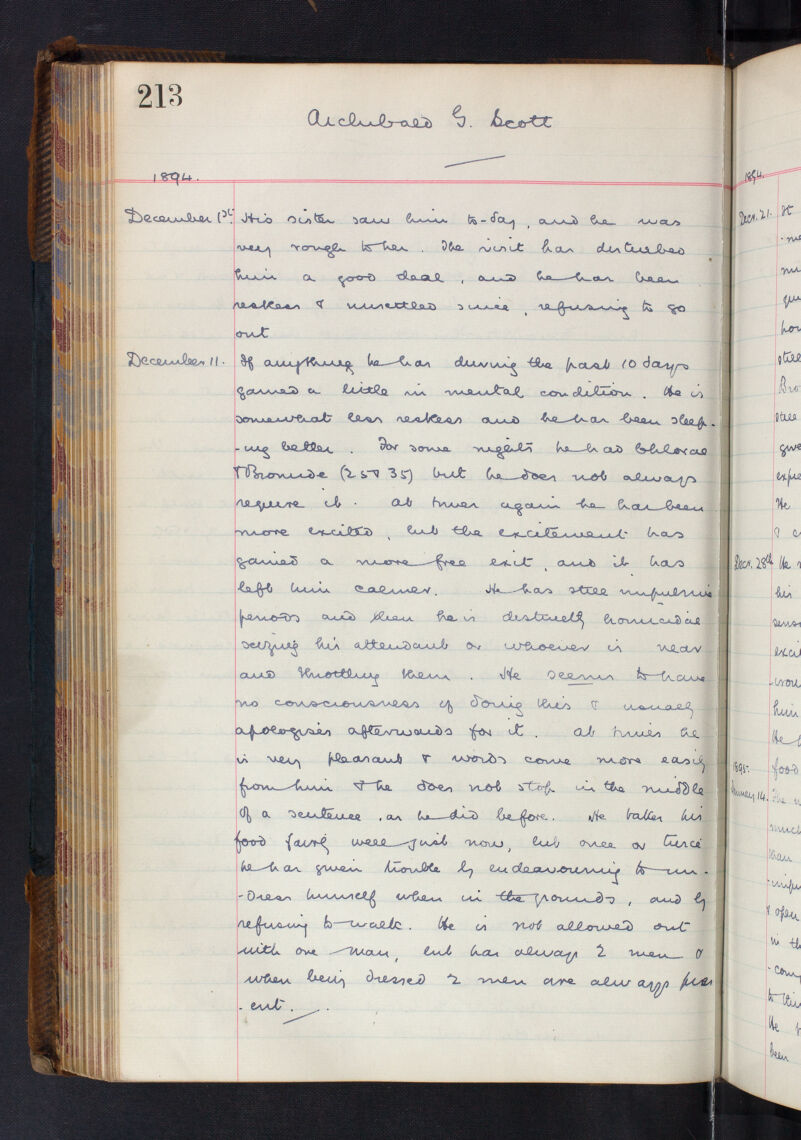 213
Archibald G. Scott
1894.
December 1st. His sister saw him to-day, and he was
very rough to her. The visit has disturbed
him a good deal, and he has been
restless & unsettled since, refusing to go
out
December 11. If anything he has during the past 10 days
gained a little in mental condition. He is
somewhat less restless and he has been sleep-
-ing better. For some nights he had Chloral
& Bromide (25 & 35) but he does not always
require it. At times again he has been
more excited, but the excitement has
gained a more free exit, and it has
left him calmer. He has still impulsive
periods and then he is distinctly homicidal
seizing his attendant or whoever is near
and throttling them. He seems to have
no consciousness of doing this & usually
apologises afterwards for it. At times he
is very pleasant & words come more easily
from him & he does not stop in the middle
of a sentence, as he did before. He takes his
food fairly well just now, but once or twice
he has given trouble by endeavouring to un-
-dress himself when in the grounds, and by
refusing to walk. He is not allowed out
with one man, but has always 2 men &
when being dressed 2 men are always pres
-ent.
1894.
Decr. 21. It
-me
hou
still
Bro
still
give
expe
He
Decr. 28th He
his
sens
exci
him
He h
1895. food
January 14. The
much
than
-impu
& open
in th
-com
to thi
He h
been